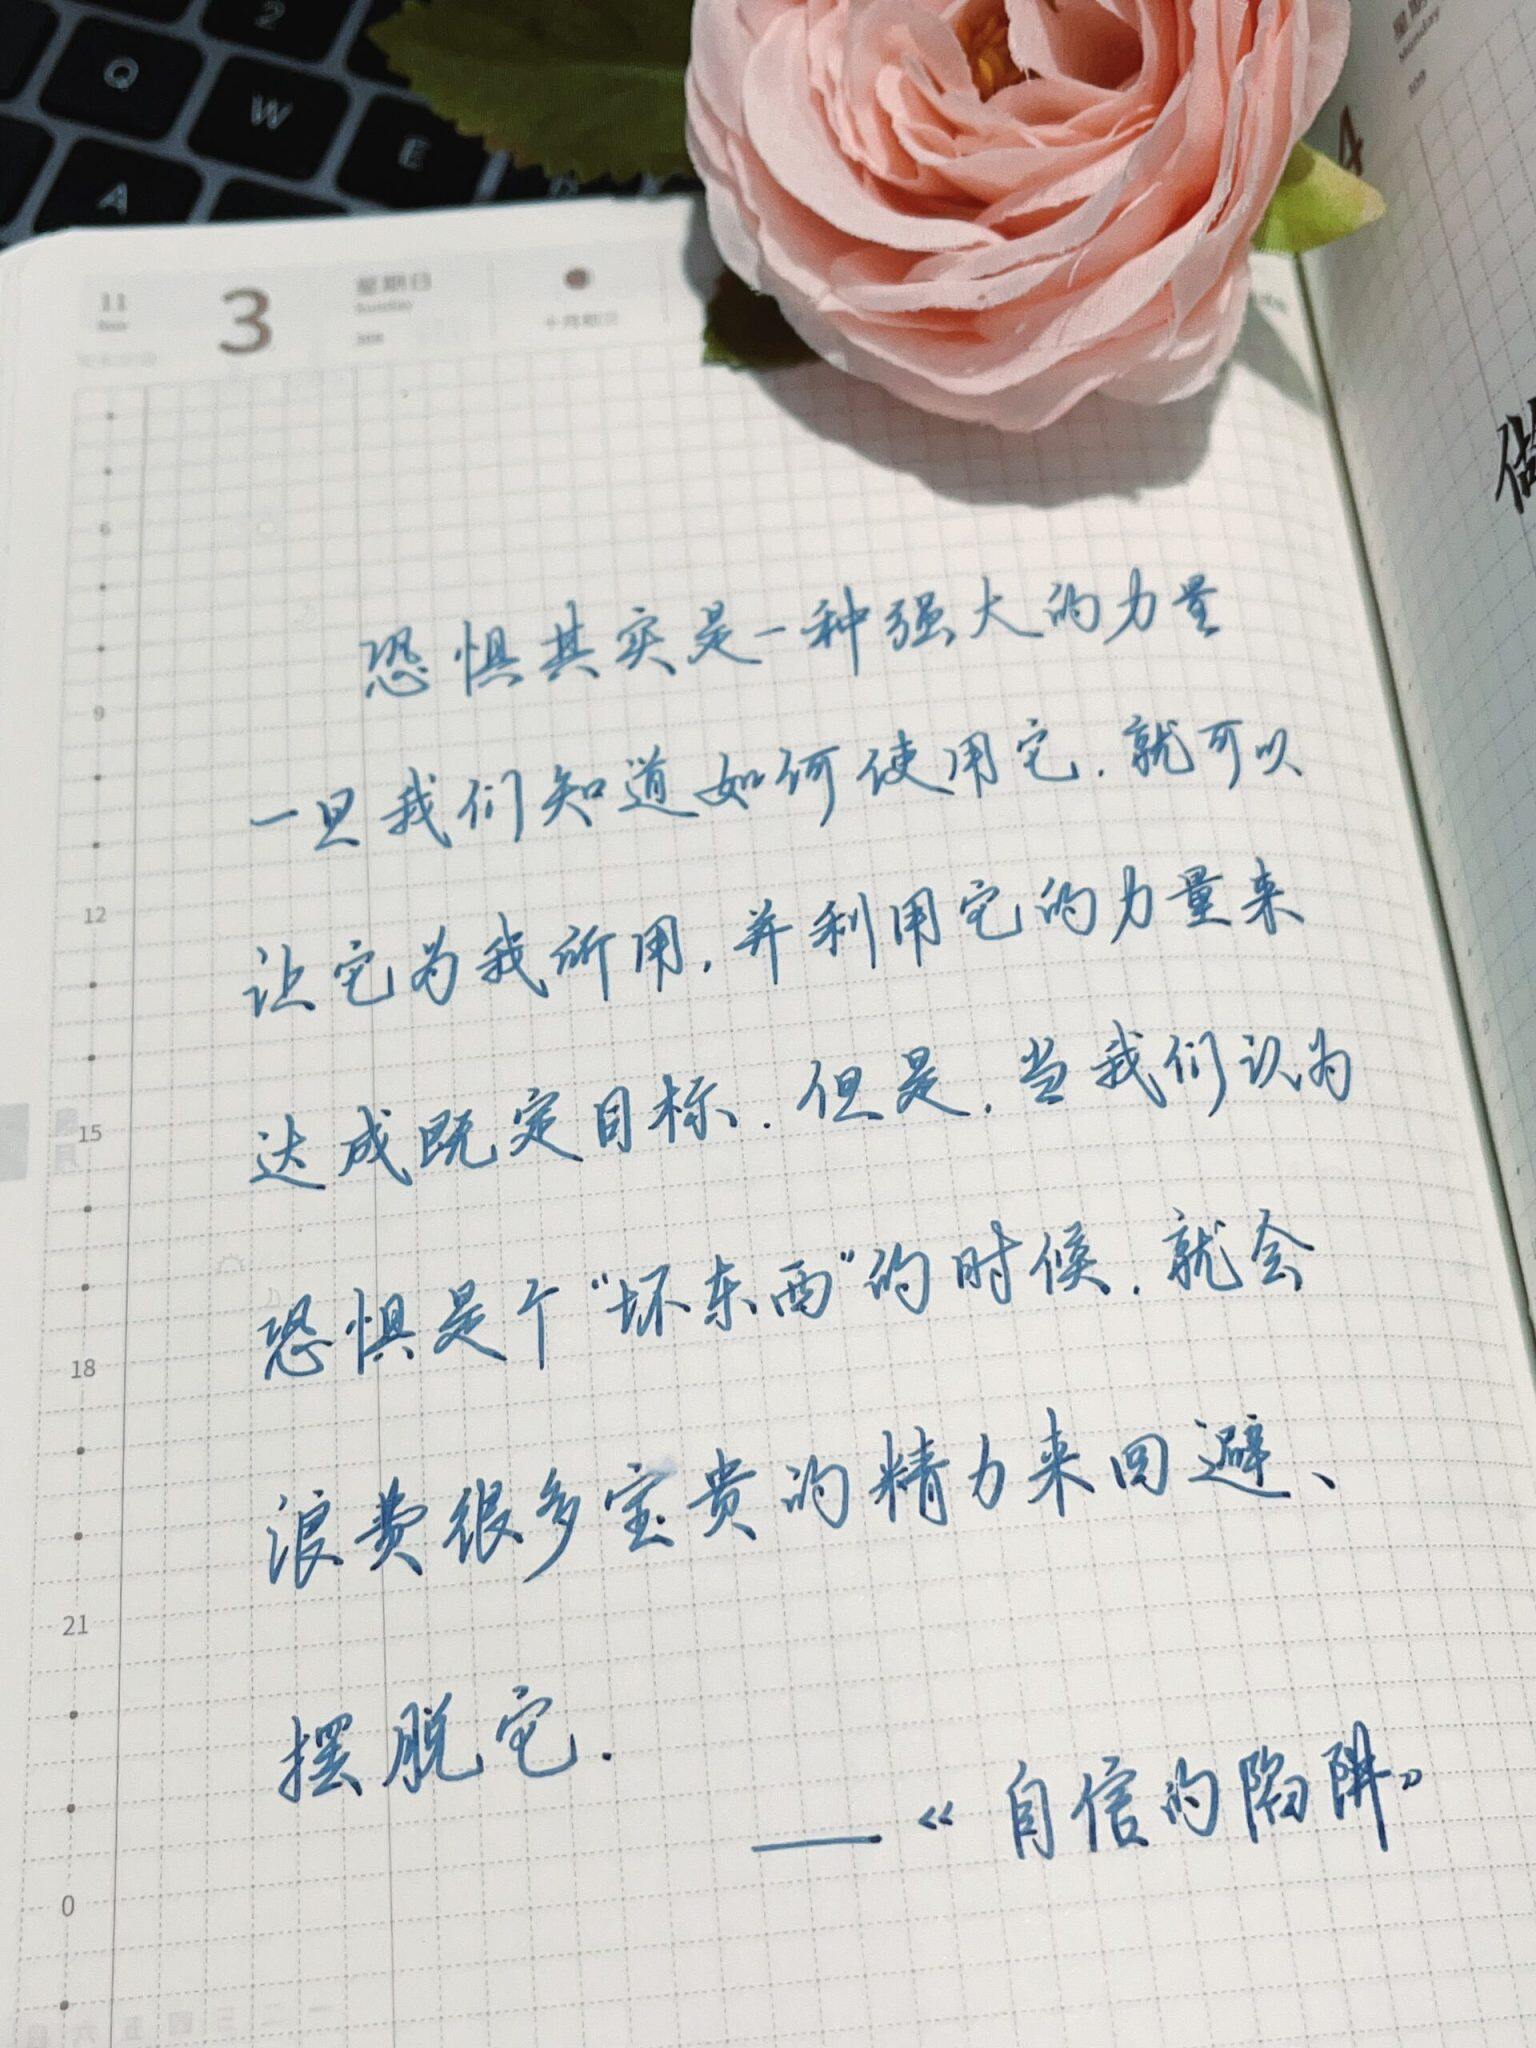 Q
W
E
A
2
11
3
星期日
Sunday
恐惧其实是一种强大的力量
一旦我们知道如何使用它.就可以
让它为我所用,并利用它的力量来
达成既定目标.但是,当我们认为
恐惧是个“坏东西”的时候,就会
浪费很多宝贵的精力来回避、
摆脱它.
——《自信的陷阱》
6
9
12
15
18
21
0
一 二 三 四 五 六
做